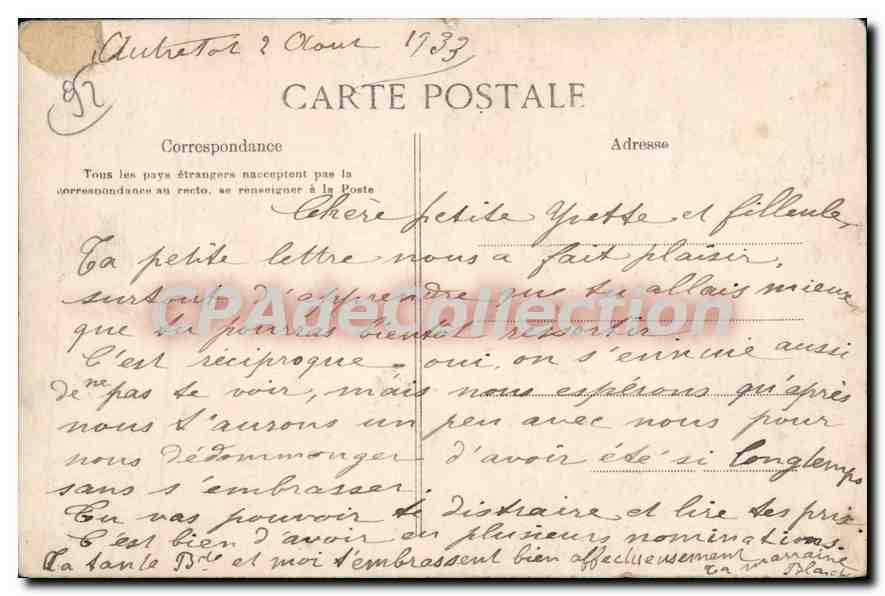 Autretot 2 Aout 1933
92
CARTE POSTALE
Correspondance
Adresse
Tous les pays étrangers nacceptent pas la
correspondance au recto, se renseigner à la Poste
Chère petite Yvette et filleule,
Ta petite lettre nous a fait plaisir,
surtout d'apprendre que tu allais mieux
que tu pourras bientôt ressortir
C'est réciproque - oui, on s'ennuie aussi
de ne pas te voir, mais nous espérons qu'après
nous t'aurons un peu avec nous pour
nous dédommager d'avoir été si longtemps
sans s'embrasser.
Tu vas pouvoir te distraire et lire tes prix
C'est bien d'avoir eu plusieurs nominations.
Ta tante Bte et moi t'embrassent bien affectueusement
Ta marraine
CPAdeCollection.com